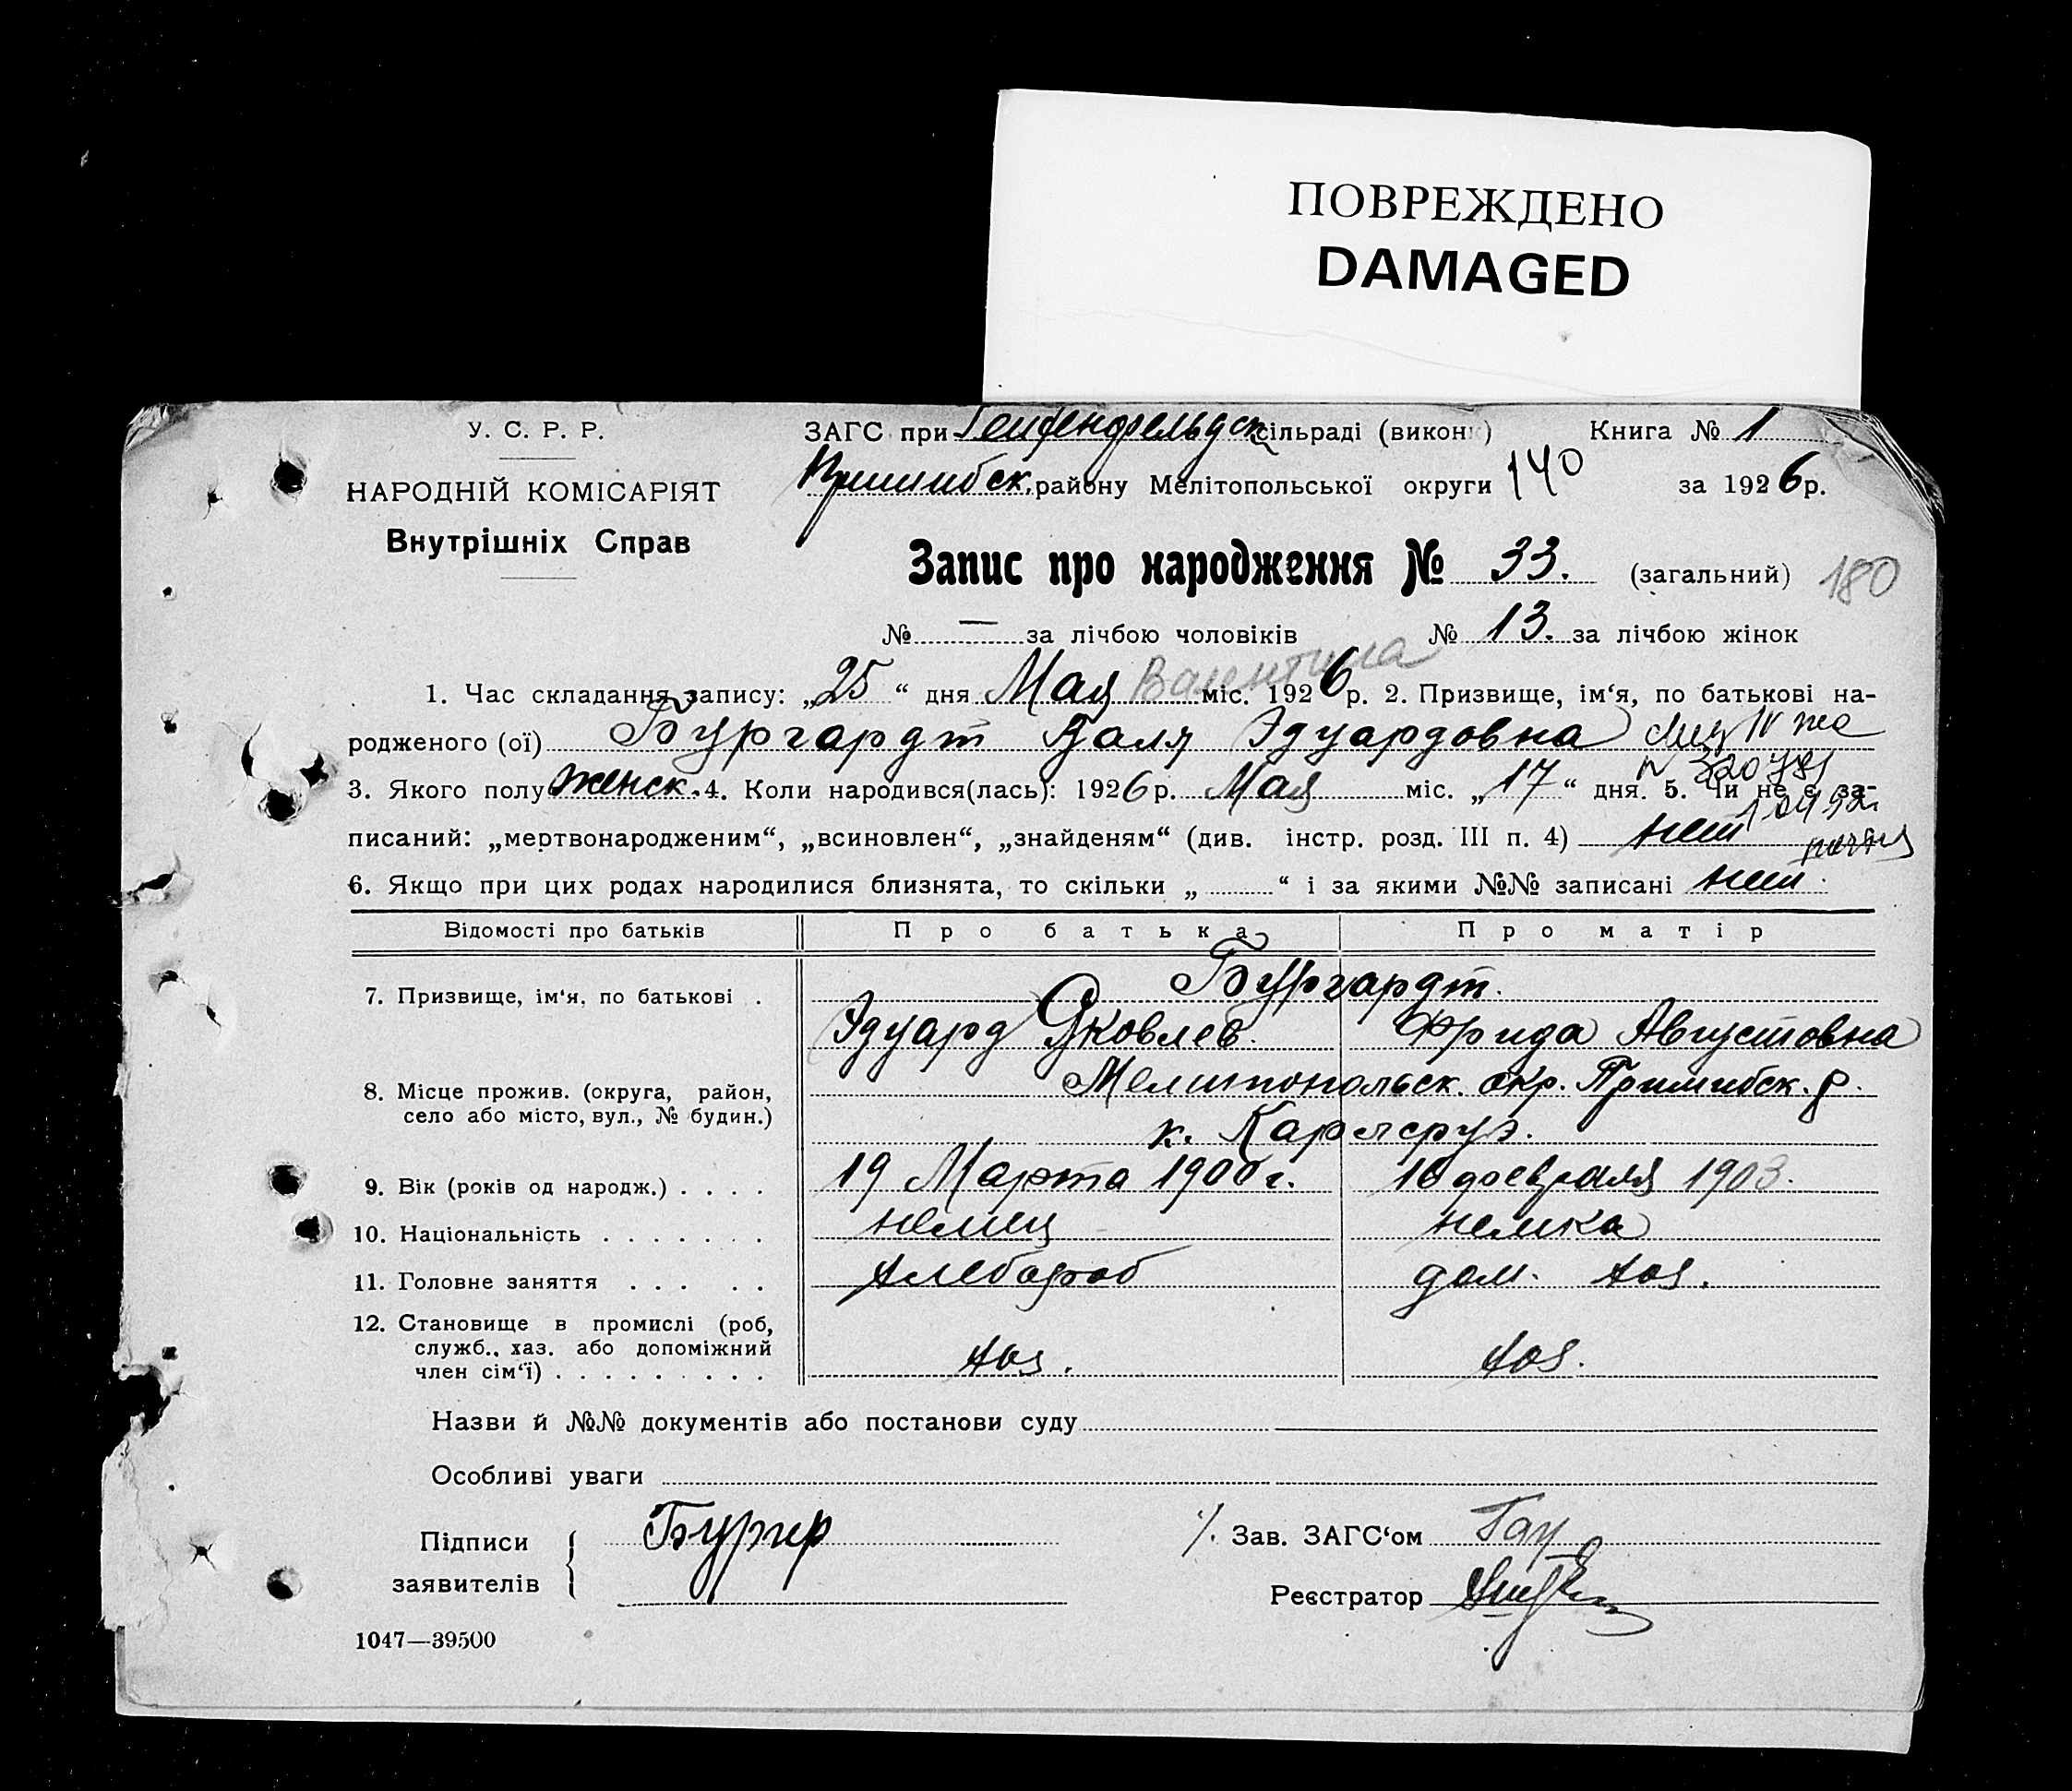 ПОВРЕЖДЕНО
DAMAGED
У. С. Р. Р.
НАРОДНІЙ КОМІСАРІЯТ
Внутрішніх Справ
ЗАГС при Гейфенфельдск сільраді (викон ) Книга № 1
Пришибск. району Мелітопольської округи 140 за 1926 р.
Запис про народження № 33. (загальний) 180
№ — за лічбою чоловіків № 13. за лічбою жінок
Валентина
1. Час складання запису: „25“ дня Мая міс. 1926 р. 2. Призвище, ім‘я, по батькові на-
родженого (ої) Бургардт Валя Эдуардовна
3. Якого полу женск. 4. Коли народився(лась): 1926 р. Мая міс. „17“ дня. 5. Чи не є за-
писаний: „мертвонародженим“, „всиновлен“, „знайденям“ (див. інстр. розд. III п. 4) нет
6. Якщо при цих родах народилися близнята, то скільки „ “ і за якими №№ записані нет.
Відомості про батьків Про батька Про матір
7. Призвище, ім‘я, по батькові . Бургардт.
Эдуард Яковлев. Фрида Августовна
8. Місце прожив. (округа, район, село або місто, вул., № будин.) Мелитопольск. окр. Пришибск. р.
к. Карлсруэ.
9. Вік (років од народж.) . . . . 19 Марта 1900 г. 16 февраля 1903.
10. Національність . . . . . . . немец немка
11. Головне заняття . . . . . хлебороб дом. хоз.
12. Становище в промислі (роб,
служб., хаз. або допоміжний
член сім‘ї) . . . . . . . . . хоз. хоз.
Назви й №№ документів або постанови суду
Особливі уваги
Підписи
заявителів
Бургер
Зав. ЗАГС‘ом Гау
Реєстратор
1047—39500